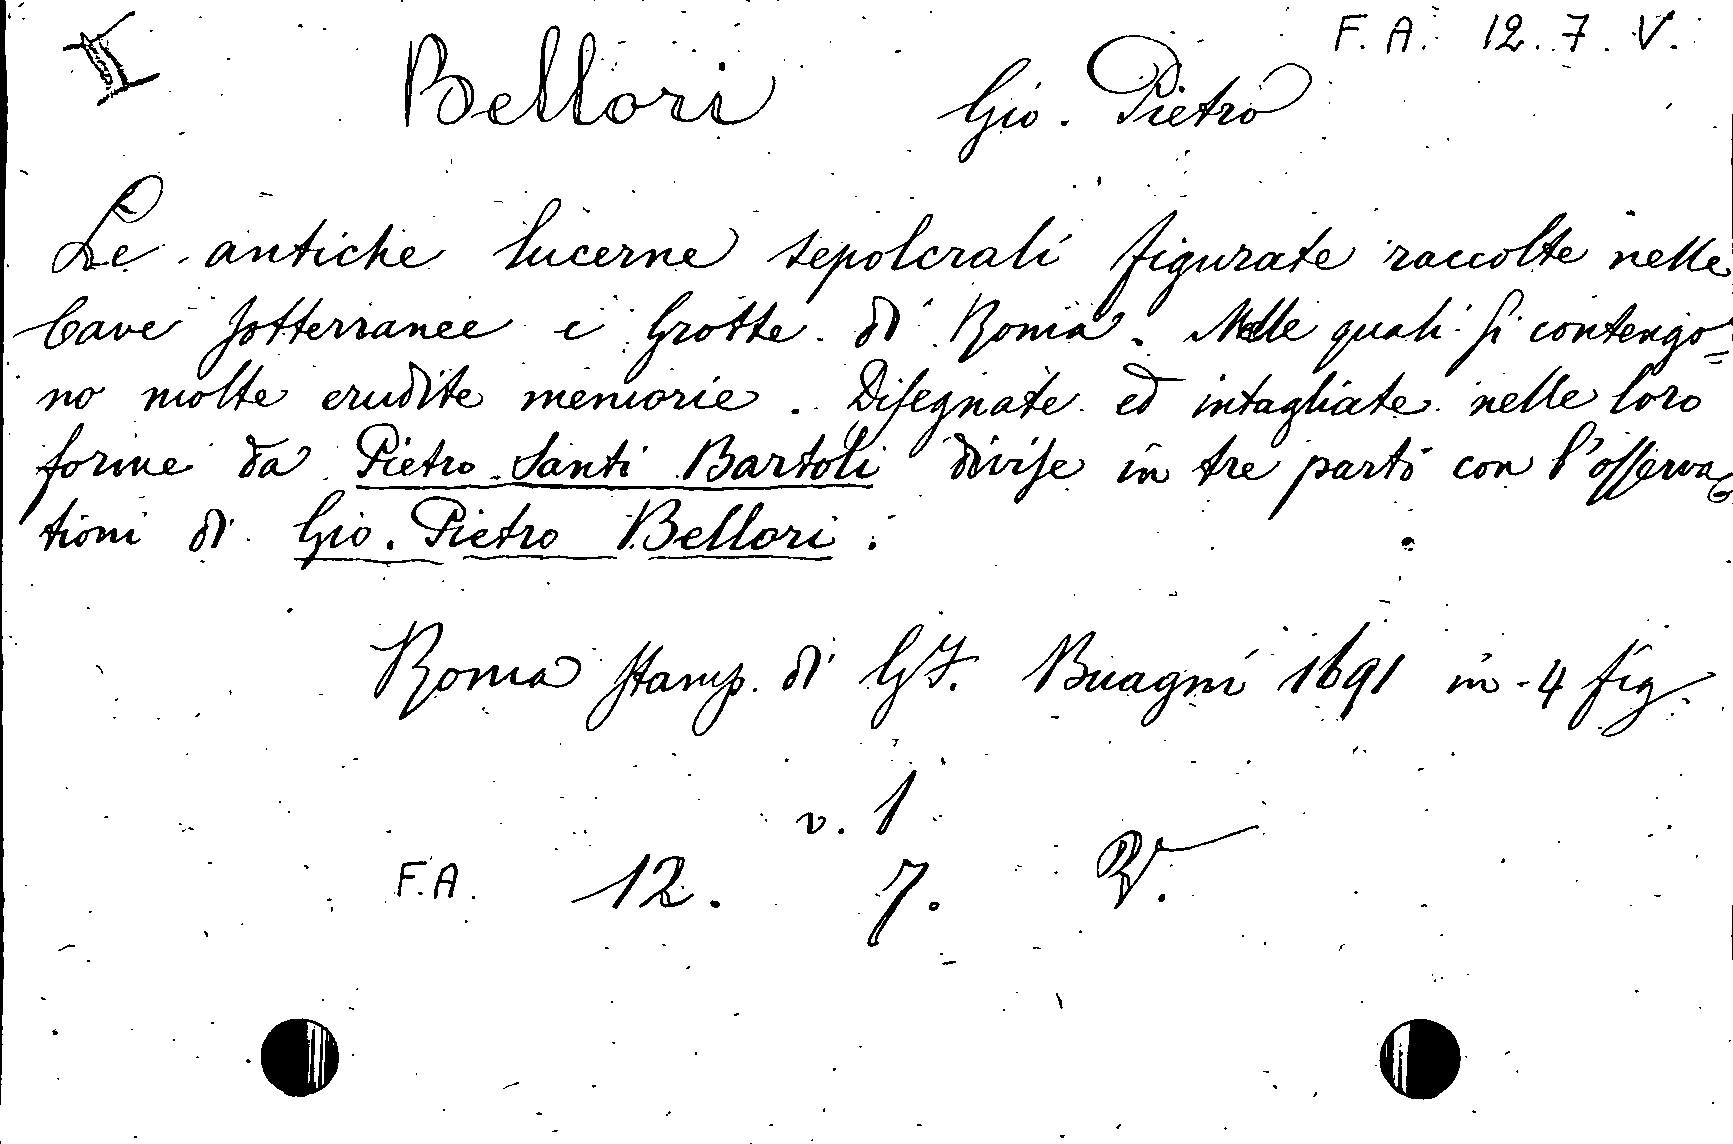 F. A. 12. 7. V.
Bellori Gio. Pietro
Le antiche lucerne sepolcrali figurate raccolte nelle
Cave sotterranee e Grotte di Roma. Nelle quali si contengo=
no molte erudite memorie. Disegnate ed intagliate nelle loro
forme da Pietro Santi Bartoli divise in tre parti con l'osserva
tioni di Gio. Pietro Bellori.
Roma stamp. di G.F. Buagni 1691 in-4 fig.
v. 1
F.A. 12. 7.